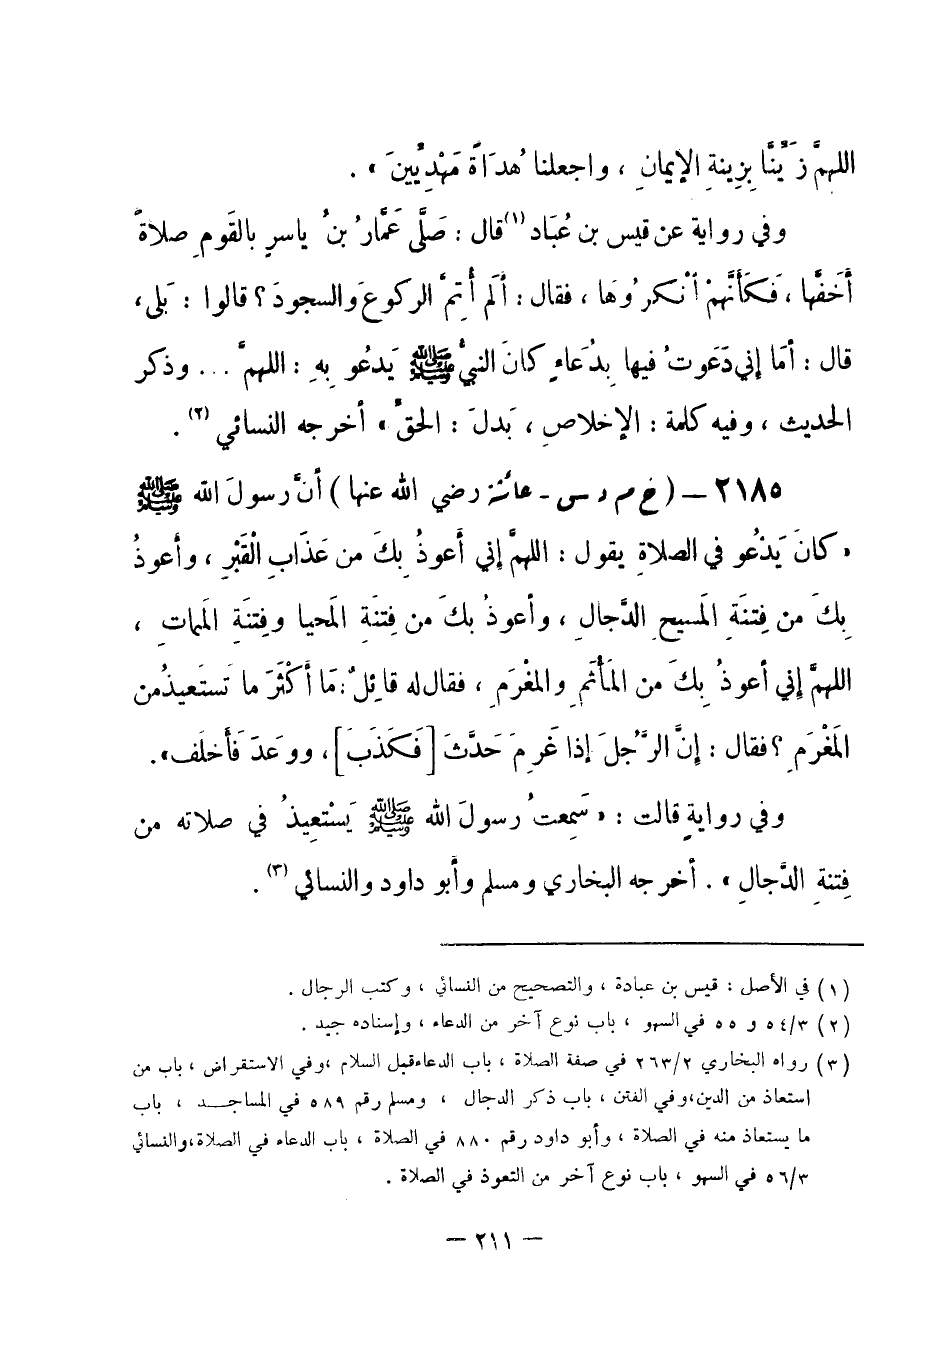 اللهمَّ زَيِّنَّا بِزِينةِ الإيمانِ ، واجعلنا هُدَاةً مَهْدِيِّينَ » .
وفي رواية عن قيس بن عُبَاد (١) قال : صَلَّى عَمَّارُ بنُ ياسرٍ بالقَومِ صلاةً
أَخَفَّها ، فَكأَنَّهمْ أنْكرُوهَا ، فقال : ألَم أُتِمَّ الركوعَ والسجودَ ؟ قالوا : بَلى ،
قال : أمَا إني دَعَوتُ فيها بِدُعَاءٍ كانَ النبيُّ ﷺ يَدعُو بِهِ : اللهمَّ ... وذكر
الحديث ، وفيه كلمة : الإخلاصِ ، بَدلَ : الحَقِّ » أخرجه النسائي (٢) .
٢١٨٥ – ( خ م د س - عائشة رضي الله عنها ) أنَّ رسولَ الله ﷺ
« كانَ يَدْعُو في الصلاةِ يقول : اللهمَّ إني أعوذُ بِكَ من عَذَابِ الْقَبْرِ ، وأعوذُ
بِكَ من فِتنَةِ المَسيحِ الدَّجالِ ، وأعوذُ بكَ من فِتنَةِ المَحيا وفِتنَةِ المَماتِ ،
اللهمَّ إني أعوذُ بِكَ من المَأثَمِ والمَغْرَمِ ، فقال له قائِلٌ : مَا أَكْثَرَ ما تَستَعيذُ من
المَغْرَمِ ؟ فقال : إنَّ الرَّجُلَ إذا غَرِمَ حَدَّثَ [فَكَذَبَ] ، ووعَدَ فَأَخلَف » .
وفي روايةٍ قالت : « سَمِعتُ رسولَ الله ﷺ يَسْتعِيذُ في صلاته من
فِتنةِ الدَّجالِ » . أخرجه البخاري ومسلم وأبو داود والنسائي (٣) .
(١) في الأصل : قيس بن عبادة ، والتصحيح من النسائي ، وكتب الرجال .
(٢) ٥٤/٣ و ٥٥ في السهو ، باب نوع آخر من الدعاء ، وإسناده جيد .
(٣) رواه البخاري ٢٦٣/٢ في صفة الصلاة ، باب الدعاء قبل السلام ، وفي الاستقراض ، باب من
استعاذ من الدين ، وفي الفتن ، باب ذكر الدجال ، ومسلم رقم ٥٨٩ في المساجد ، باب
ما يستعاذ منه في الصلاة ، وأبو داود رقم ٨٨٠ في الصلاة ، باب الدعاء في الصلاة ، والنسائي
٥٦/٣ في السهو ، باب نوع آخر من التعوذ في الصلاة .
– ٢١١ –